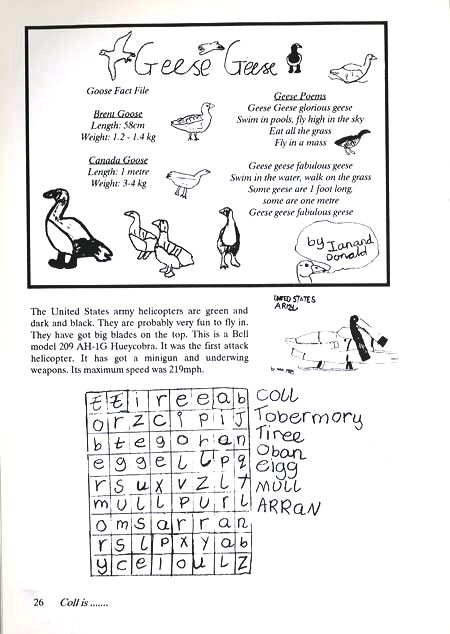 Geese Geese
Goose Fact File
Brent Goose
Length: 58cm
Weight: 1.2 - 1.4 kg
Canada Goose
Length: 1 metre
Weight: 3-4 kg
Geese Poems
Geese Geese glorious geese
Swim in pools, fly high in the sky
Eat all the grass
Fly in a mass
Geese geese fabulous geese
Swim in the water, walk on the grass
Some geese are 1 foot long,
some are one metre
Geese geese fabulous geese
by Ian and
Donald
The United States army helicopters are green and
dark and black. They are probably very fun to fly in.
They have got big blades on the top. This is a Bell
model 209 AH-1G Hueycobra. It was the first attack
helicopter. It has got a minigun and underwing
weapons. Its maximum speed was 219mph.
UNITED STATES
ARMY
t t i r e e a b
o r z c i p i J
b t e g o r a n
e g g e l u p q
r s u x v z l t
m u l l p u r l
o m s a r r a n
r s l p x y a b
y c e l o u l z
COLL
Tobermory
Tiree
Oban
eigg
MULL
ARRAN
26 Coll is .......